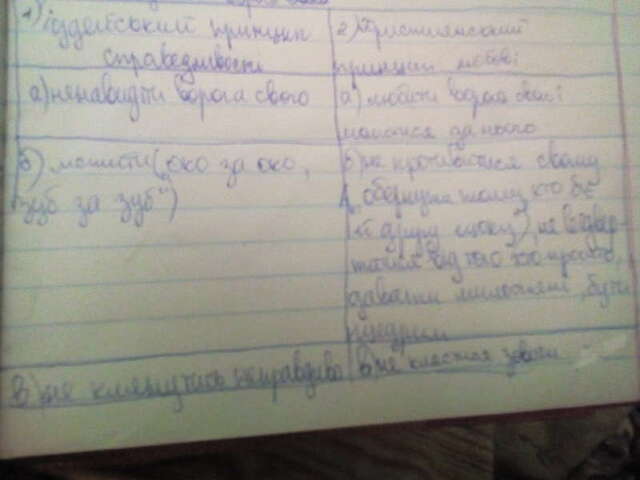 1) іудейський принцип
справедливості
а) ненавидіти ворога свого
б) мстити („око за око,
зуб за зуб")
в) не клянучись неправдиво
2) Християнський
принцип любові
а) любити ворога свого і
молитися за нього
б) не противитися свому
обернути тому, хто б'є
другу щоку"), не відвер-
татися від того хто просить,
давати милостині, бути
щедрим
в) не клястися зовсім